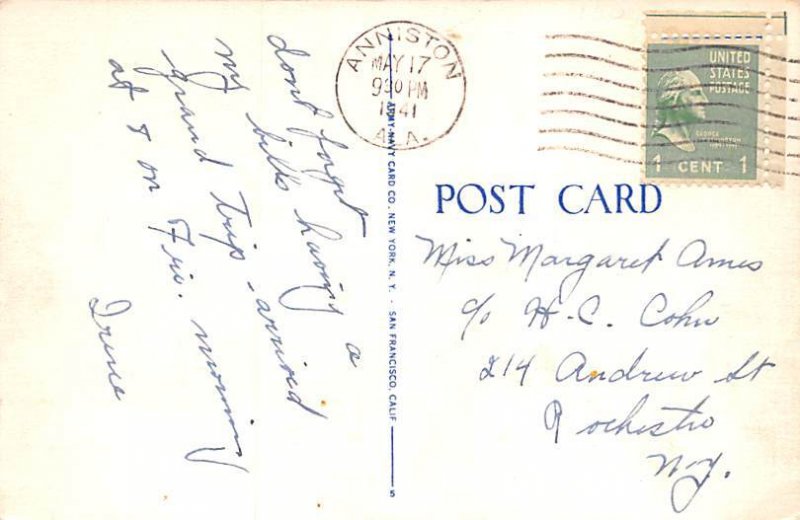 ANNISTON
MAY 17
930 PM
1941
ALA.
UNITED
STATES
POSTAGE
1 CENT 1
POST CARD
Miss Margaret Ames
c/o H-C. Cohn
214 Andrew St
Rochester
N.Y.
dont forgt
my bills having a
grand trip - arrived
at 8 on Fri. morning
Irene
ARMY-NAVY CARD CO., NEW YORK, N. Y. - SAN FRANCISCO, CALIF